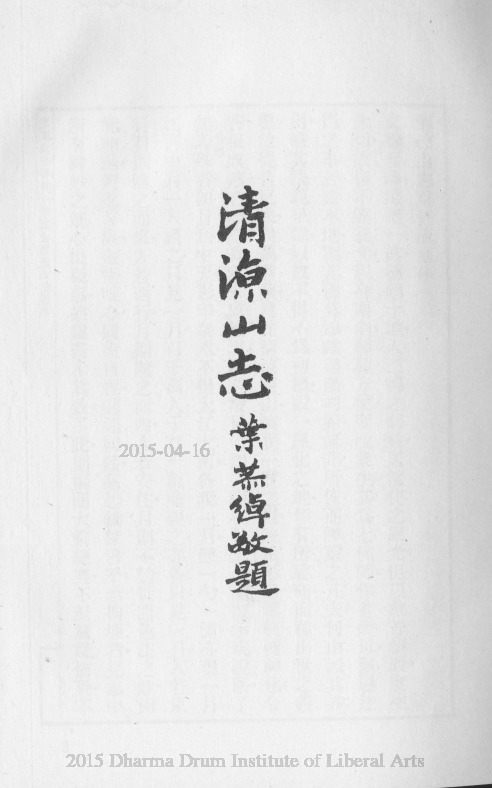 清涼山志
葉恭綽敬題
2015-04-16
2015 Dharma Drum Institute of Liberal Arts